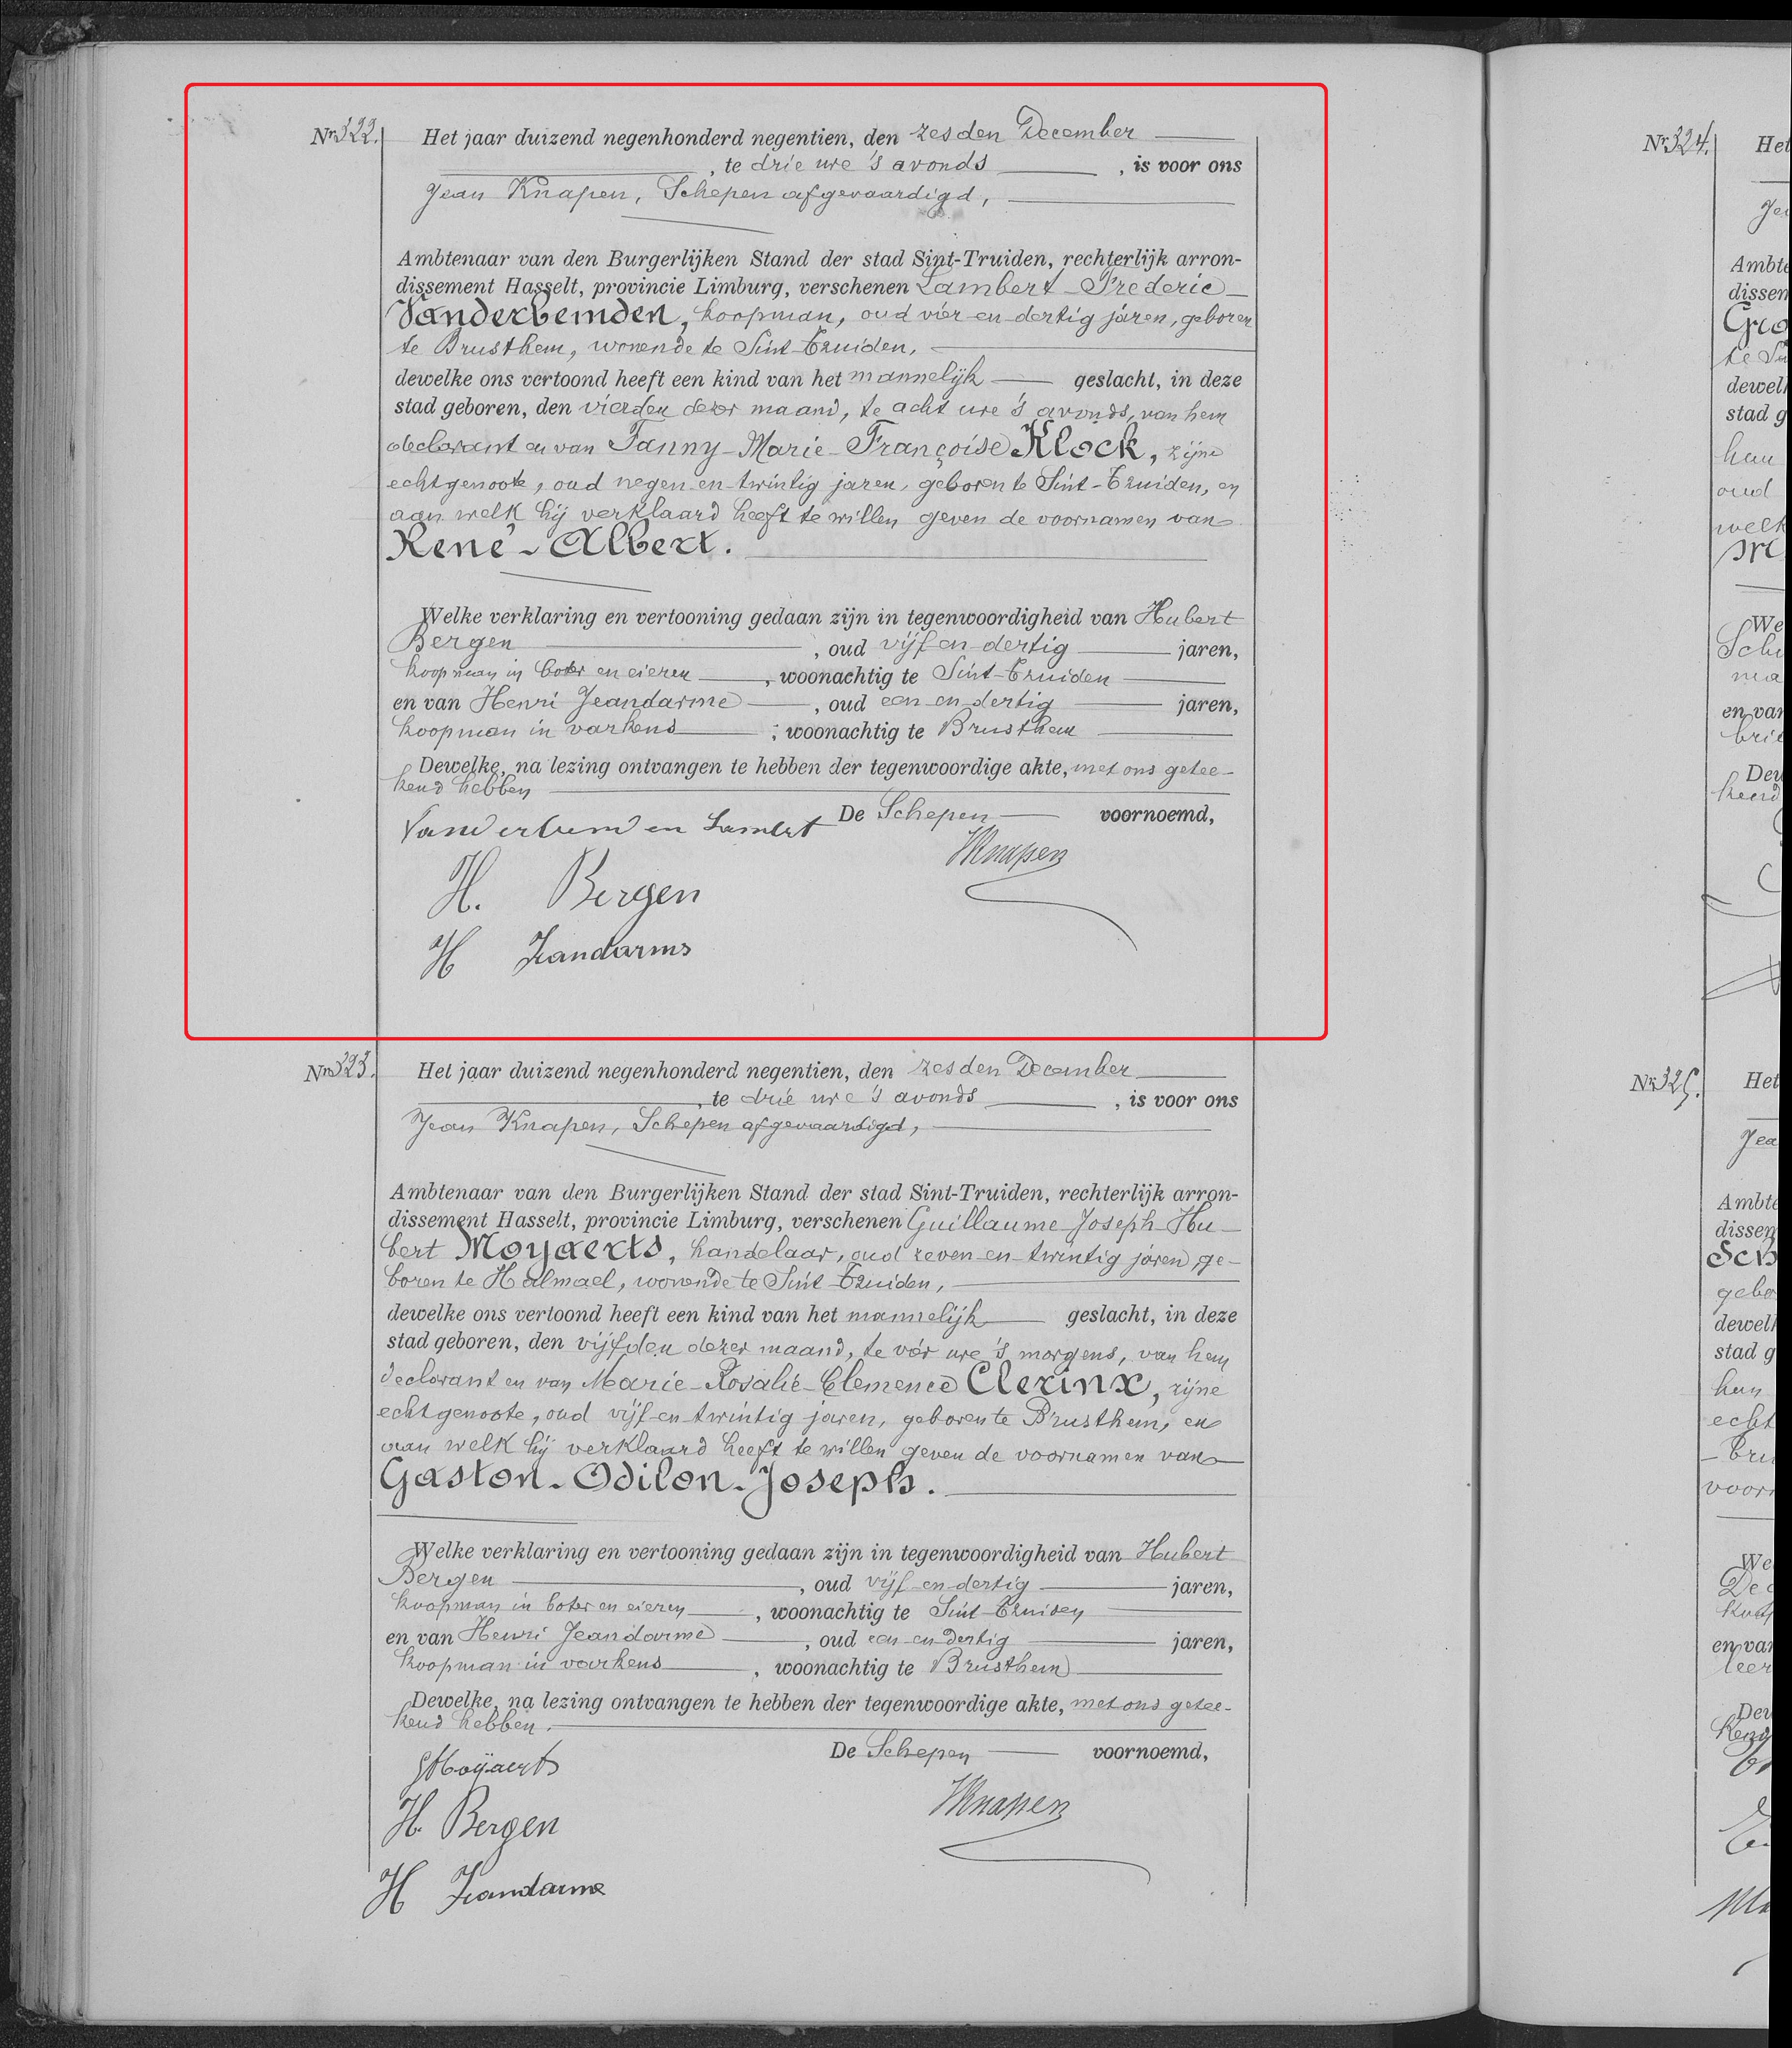 Nr 322.
Het jaar duizend negenhonderd negentien, den zesden December
, te drie ure 's avonds , is voor ons
Jean Knapen, Schepen afgevaardigd,
Ambtenaar van den Burgerlijken Stand der stad Sint-Truiden, rechterlijk arron-
dissement Hasselt, provincie Limburg, verschenen Lambert-Frederic
Vanderbemden, koopman, oud vier-en-dertig jaren, geboren
te Brusthem, wonende te Sint-Truiden,
dewelke ons vertoond heeft een kind van het mannelijk geslacht, in deze
stad geboren, den vierden dezer maand, te acht ure 's avonds, van hem
declarant en van Fanny-Marie-Françoise Klock, zijne
echtgenoote, oud negen-en-twintig jaren, geboren te Sint-Truiden, en
aan welk hij verklaard heeft te willen geven de voornamen van
René-Albert.
Welke verklaring en vertooning gedaan zijn in tegenwoordigheid van Hubert
Bergen , oud vijf en dertig jaren,
koopman in boter en eieren , woonachtig te Sint-Truiden
en van Henri Jeandarme , oud een en dertig jaren,
koopman in varkens , woonachtig te Brusthem
Dewelke, na lezing ontvangen te hebben der tegenwoordige akte, met ons getee-
kend hebben
De Schepen voornoemd,
Vanderbemden Lambert
JKnapen
H. Bergen
H Jeandarme
Nr 323.
Het jaar duizend negenhonderd negentien, den zesden December
, te drie ure 's avonds , is voor ons
Jean Knapen, Schepen afgevaardigd,
Ambtenaar van den Burgerlijken Stand der stad Sint-Truiden, rechterlijk arron-
dissement Hasselt, provincie Limburg, verschenen Guillaume-Joseph-Hu-
bert Moyaerts, handelaar, oud zeven-en-twintig jaren, ge-
boren te Halmael, wonende te Sint-Truiden,
dewelke ons vertoond heeft een kind van het mannelijk geslacht, in deze
stad geboren, den vijfden dezer maand, te vier ure 's morgens, van hem
declarant en van Marie-Rosalie-Clemence Clerinx, zijne
echtgenoote, oud vijf-en-twintig jaren, geboren te Brusthem, en
aan welk hij verklaard heeft te willen geven de voornamen van
Gaston-Odilon-Joseph.
Welke verklaring en vertooning gedaan zijn in tegenwoordigheid van Hubert
Bergen , oud vijf-en-dertig jaren,
koopman in boter en eieren , woonachtig te Sint-Truiden
en van Henri Jeandarme , oud een-en-dertig jaren,
koopman in varkens , woonachtig te Brusthem
Dewelke, na lezing ontvangen te hebben der tegenwoordige akte, met ons getee-
kend hebben.
De Schepen voornoemd,
GMoyaerts
JKnapen
H. Bergen
H Jeandarme
Nr 324.
Het
Ambte
dissem
dewel
stad g
We
en van
Dew
Nr 325.
Het
Ambte
dissem
dewel
stad g
We
en van
Dew